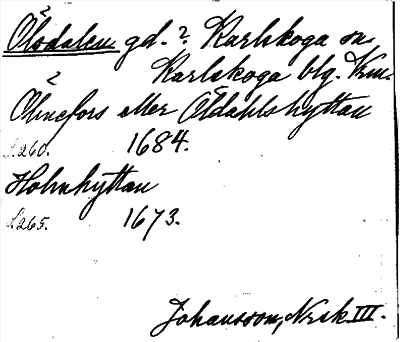 Ölsdalen gd.? Karlskoga sn.
Karlskoga blg. Krm.
Ölnefors eller Öldahlshyttan
s.260. 1684.
Holmhyttan
s.265. 1673.
Johansson, Norsk III.